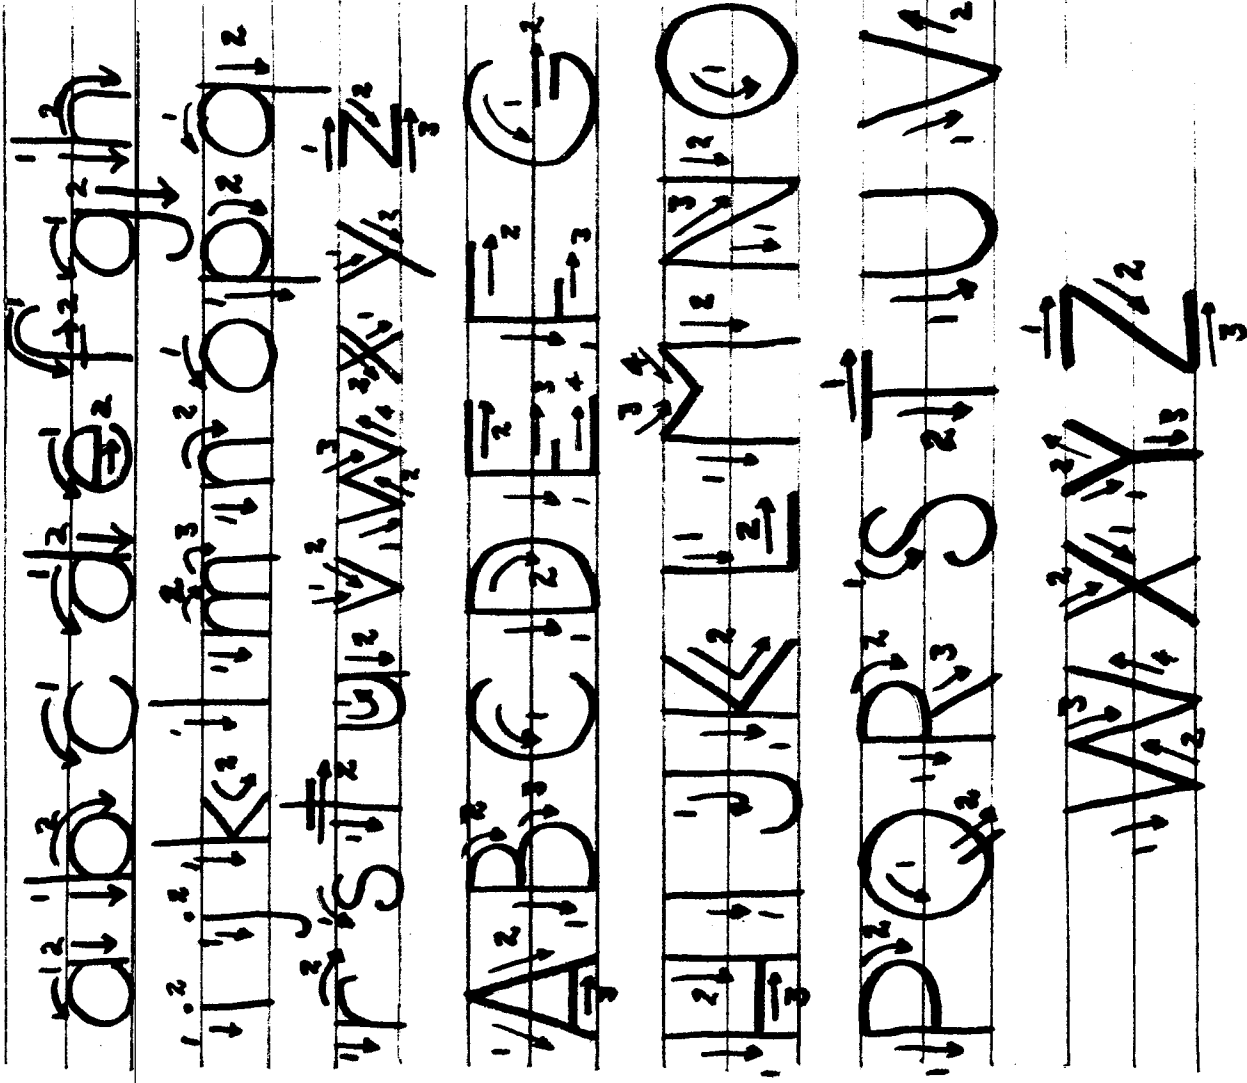 a b c d e f g h
i j k l m n o p q
r s t u v w x y z
A B C D E F G
H I J K L M N O
P Q R S T U V
W X Y Z